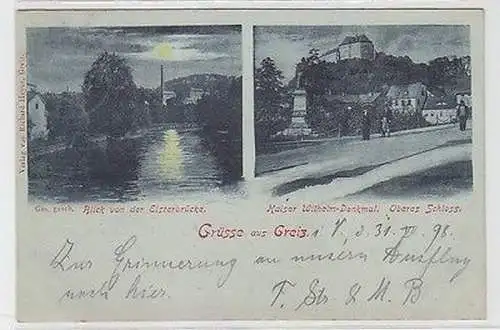 Verlag von Richard Heyer, Greiz.
Ges. gesch. Blick von der Elsterbrücke.
Kaiser Wilhelm-Denkmal. Oberes Schloss.
Grüsse aus Greiz i. V., d. 31. VII 98.
Zur Erinnerung an unsern Ausflug
nach hier. T. Str & M. B